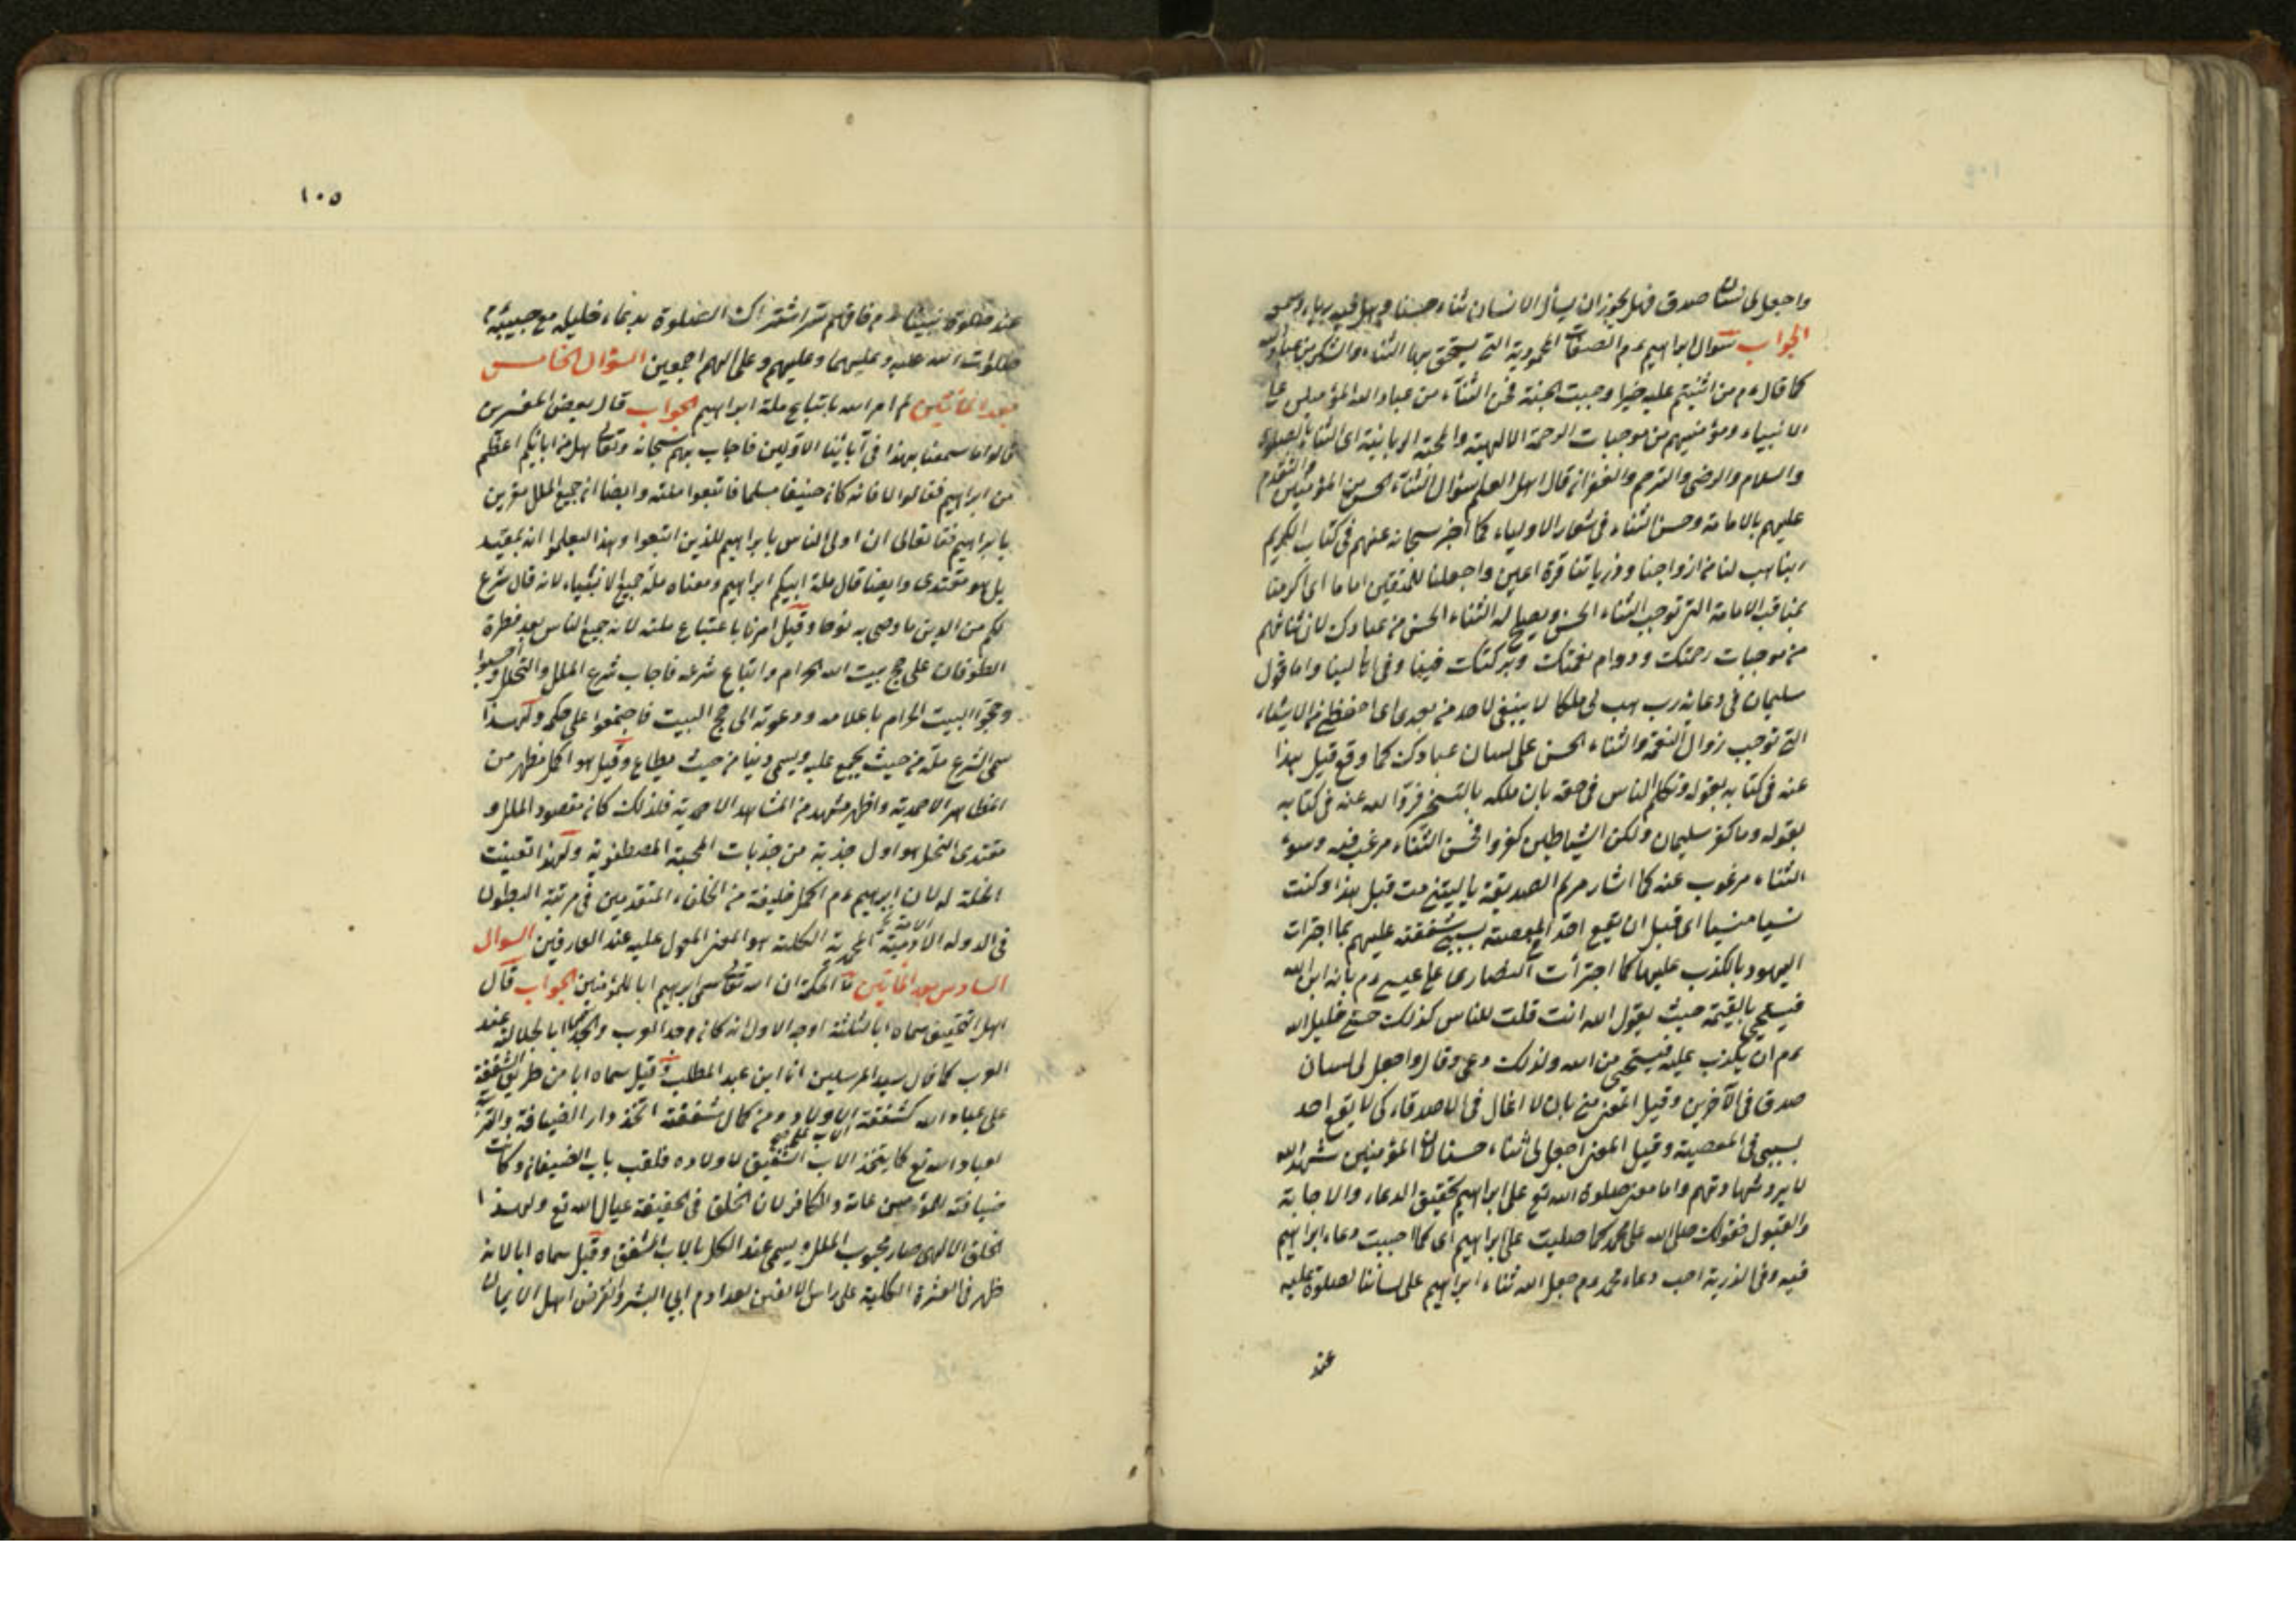 واجعل لى لسان صدق فهل يجوز ان يسأل الانسان ثناء حسنا وهل فيه رياء وسمعة
الجواب سؤال ابراهيم عم الصفات المحمودية التى يستحق بها الثناء والشكر من عباد الله
كما قال عم من اثنيتم عليه خيرا وجبت الجنة فحسن الثناء من عباد الله المؤمنين على
الانبياء ومؤمنيهم من موجبات الرحمة الالهية والمحبة الربانية اى الثناء بالصلوة
والسلام والرضى والترحم والغفران قال اهل العلم سؤال الثناء الحسن من المؤمنين والتقدم
عليهم بالامامة وحسن الثناء فى شعار الاولياء كما اخبر سبحانه عنهم فى كتاب الكريم
ربنا هب لنا من ازواجنا وذرياتنا قرة اعين واجعلنا للمتقين اماما اى اكرمنا
بمناقب الامامة التى توجب الثناء الحسن ويصلح له الثناء الحسن من عبادك لان ثنائهم
من موجبات رحمتك ودوام نعمتك وبركتك فينا وفى اهالينا واما قول
سليمان فى دعائه رب هب لى ملكا لا ينبغى لاحد من بعدى اى احفظنى من الاشياء
التى توجب زوال النعمة والثناء الحسن على لسان عبادك كما وقع قبل هذا
عنه فى كتابه بقوله وتكلم الناس فى حقه بان ملكه بالتسخر فردّ الله عنه فى كتابه
بقوله وما كفر سليمان ولكن الشياطين كفروا فحسن الثناء مرغب فيه وسوء
الثناء مرغوب عنه كما اشار مريم الصديقة يا ليتنى مت قبل هذا وكنت
نسيا منسيا اى قبل ان يقع احد فى المعصية بسبب شفقته عليهم بما اجترات
اليهود بالكذب عليها كما اجترأت النصارى على عيسى عم بانه ابن الله
فيستحيى بالقيمة حيث يقول الله انت قلت للناس كذلك خشى خليل الله
عم ان يكذب عليه فيستحيى من الله ولذلك دعى وقال واجعل لى لسان
صدق فى الآخرين وقيل المعنى منى بان لا اغال فى الاصدقاء كى لا يقع احد
بسببى فى المعصية وقيل المعنى اجعل لى ثناء حسنا لان المؤمنين شهداء الله
لا يرد شهادتهم واما معنى صلوة الله تع على ابراهيم تحقيق الدعاء والاجابة
والقبول فقولك صلى الله على محمد كما صليت على ابراهيم اى كما اجبت دعاء ابراهيم
فيه وفى الذرية اجب دعاء محمد عم وجعل الله ثناء ابراهيم على لساننا لصلوة عليه
عند
١٠٥
عند صلوة نبينا عم فافهم سر اشتراك الصلوة بدعاء خليله مع حبيبه
صلوات الله عليه وعليهما وعليهم وعلى الهم اجمعين السؤال الخامس
بعد المائتين لم امر الله باتباع ملة ابراهيم الجواب قال بعض المفسرين
قالوا ما سمعنا بهذا فى آبائنا الاولين فاجاب بهم سبحانه وتعالى هل من ابائكم اعظم
من ابراهيم فقالوا لا فانه كان حنيفا مسلما فاتبعوا ملته وايضا ان جميع الملل مقرين
بابراهيم فقال تعالى ان اولى الناس بابراهيم للذين اتبعوا وهذا ليعلموا انه بمقتد
بل هو مقتدى وايضا قال ملة ابيكم ابراهيم ومعناه ملة جميع الانبياء لانه قال شرع
لكم من الدين ما وصى به نوحا وقيل امرنا باتباع ملته لانه جميع الناس بعد فطرة
الطوفان على حج بيت الله الحرام واتباع شرعه فاجاب شرع الملل والنحل واجمعوا
وحجوا البيت الحرام باعلامه ودعوته الى حج البيت فاجتمعوا على حكمه ولهذا
سمى الشرع ملة من حيث يجمع عليه ويسمى دينا من حيث يطاع وقيل هو اكمل مظهر من
المظاهر الاحمدية واظهر مشهد من المشاهد الاحمدية فلذلك كان مقصود الملل و
مقتدى النحل هو اول جذبة من جذبات المحبة المصطفوية ولهذا تعينت
الخلة له لان ابراهيم عم اكمل خليفة من الخلفاء المتقدمين فى مرتبة البطون
فى الدولة الآدمية الاحمدية المحمدية الكلية هو المعنى المعول عليه عند العارفين السؤال
السادس بعد المائتين ما الحكمة ان الله تعالى سمى ابراهيم ابا للمؤمنين الجواب قال
اهل التحقيق سماه ابا لثلثة اوجه الاول انه كان جد العرب والجد ابا لجلالته عند
العرب كما قال سيد المرسلين انا ابن عبد المطلب وقيل سماه ابا من طريق الشفقة
على عباد الله كشفقة الاب على ولده ومن كمال شفقته اتخذ دار الضيافة
لعباد الله تع كما يتخذ الاب الشفيق لاولاده فلقب باب الضيفان وكانت
ضيافته للمؤمنين عامة وللكافر لان الخلق فى الحقيقة عيال الله تع ولهذا
الخلق الالهى صار محبوب الملل ويسمى عند الكل بالاب المشفق وقيل سماه ابا لانه
ظهر فى العشرة الكلية على راس الالفين بعد ادم ابى البشر وانقرض اهل الايمان